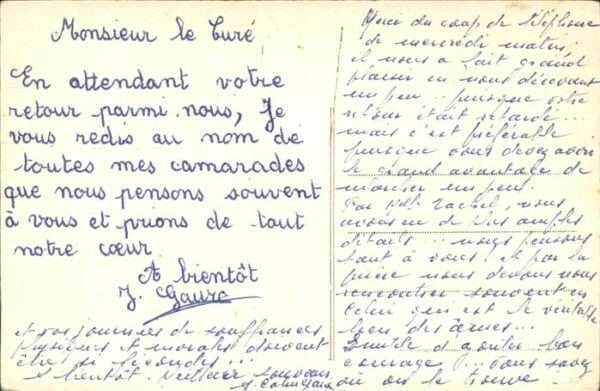 Monsieur le Curé
En attendant votre
retour parmi nous, Je
vous redis au nom de
toutes mes camarades
que nous pensons souvent
à vous et prions de tout
notre cœur
A bientôt
J. Gaure
Merci du coup de téléphone
de mercredi matin
il nous a fait grand
plaisir en nous décevant
un peu.. puisque votre
retour était retardé...
mais c'est préférable
puisque vous devez avoir
le grand avantage de
marcher un peu.
Par Mlle Rachel, nous
avons eu de plus amples
détails... nous pensons
tant à vous. et par la
prière nous devons nous
rencontrer souvent en
Celui qui est le véritable
lien des âmes...
Inutile d'ajouter bon
courage !... Vous savez
où on le trouve..
et vos journées de souffrances
physiques et morales doivent
être si fécondes...
A bientôt. Meilleur souvenir